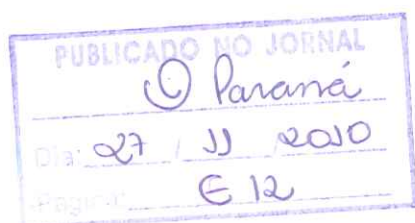 PUBLICADO NO JORNAL
O Paraná
Dia: 27 / 11 2010
Página: E 12